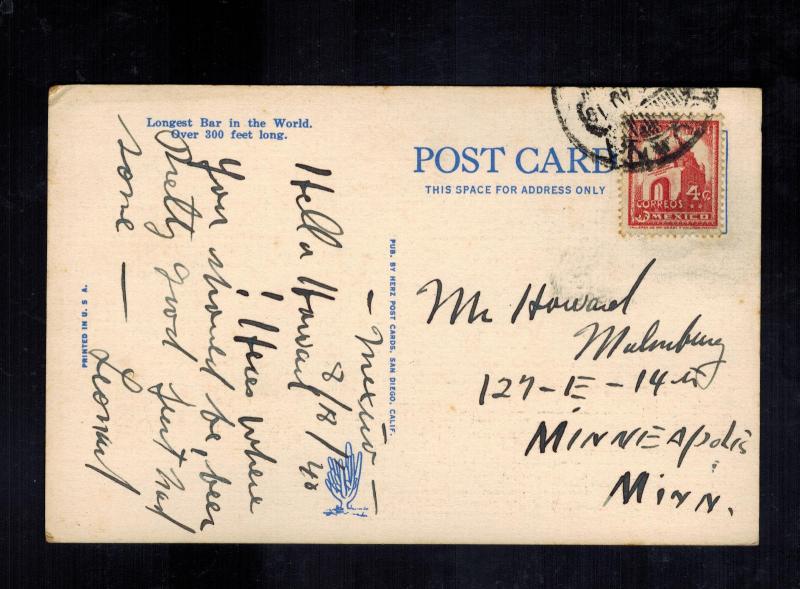 Longest Bar in the World.
Over 300 feet long.
POST CARD
THIS SPACE FOR ADDRESS ONLY
4¢
CORREOS
MEXICO
PUB. BY HERZ POST CARDS, SAN DIEGO, CALIF.
PRINTED IN U. S. A.
— Mexico —
8/18/40
Hello Howard
Heres where
You should be, beer
Pretty good just had
some —
Leonard
Mr Howard
Malmburg
127-E-14th
MINNEAPOLIS
MINN.